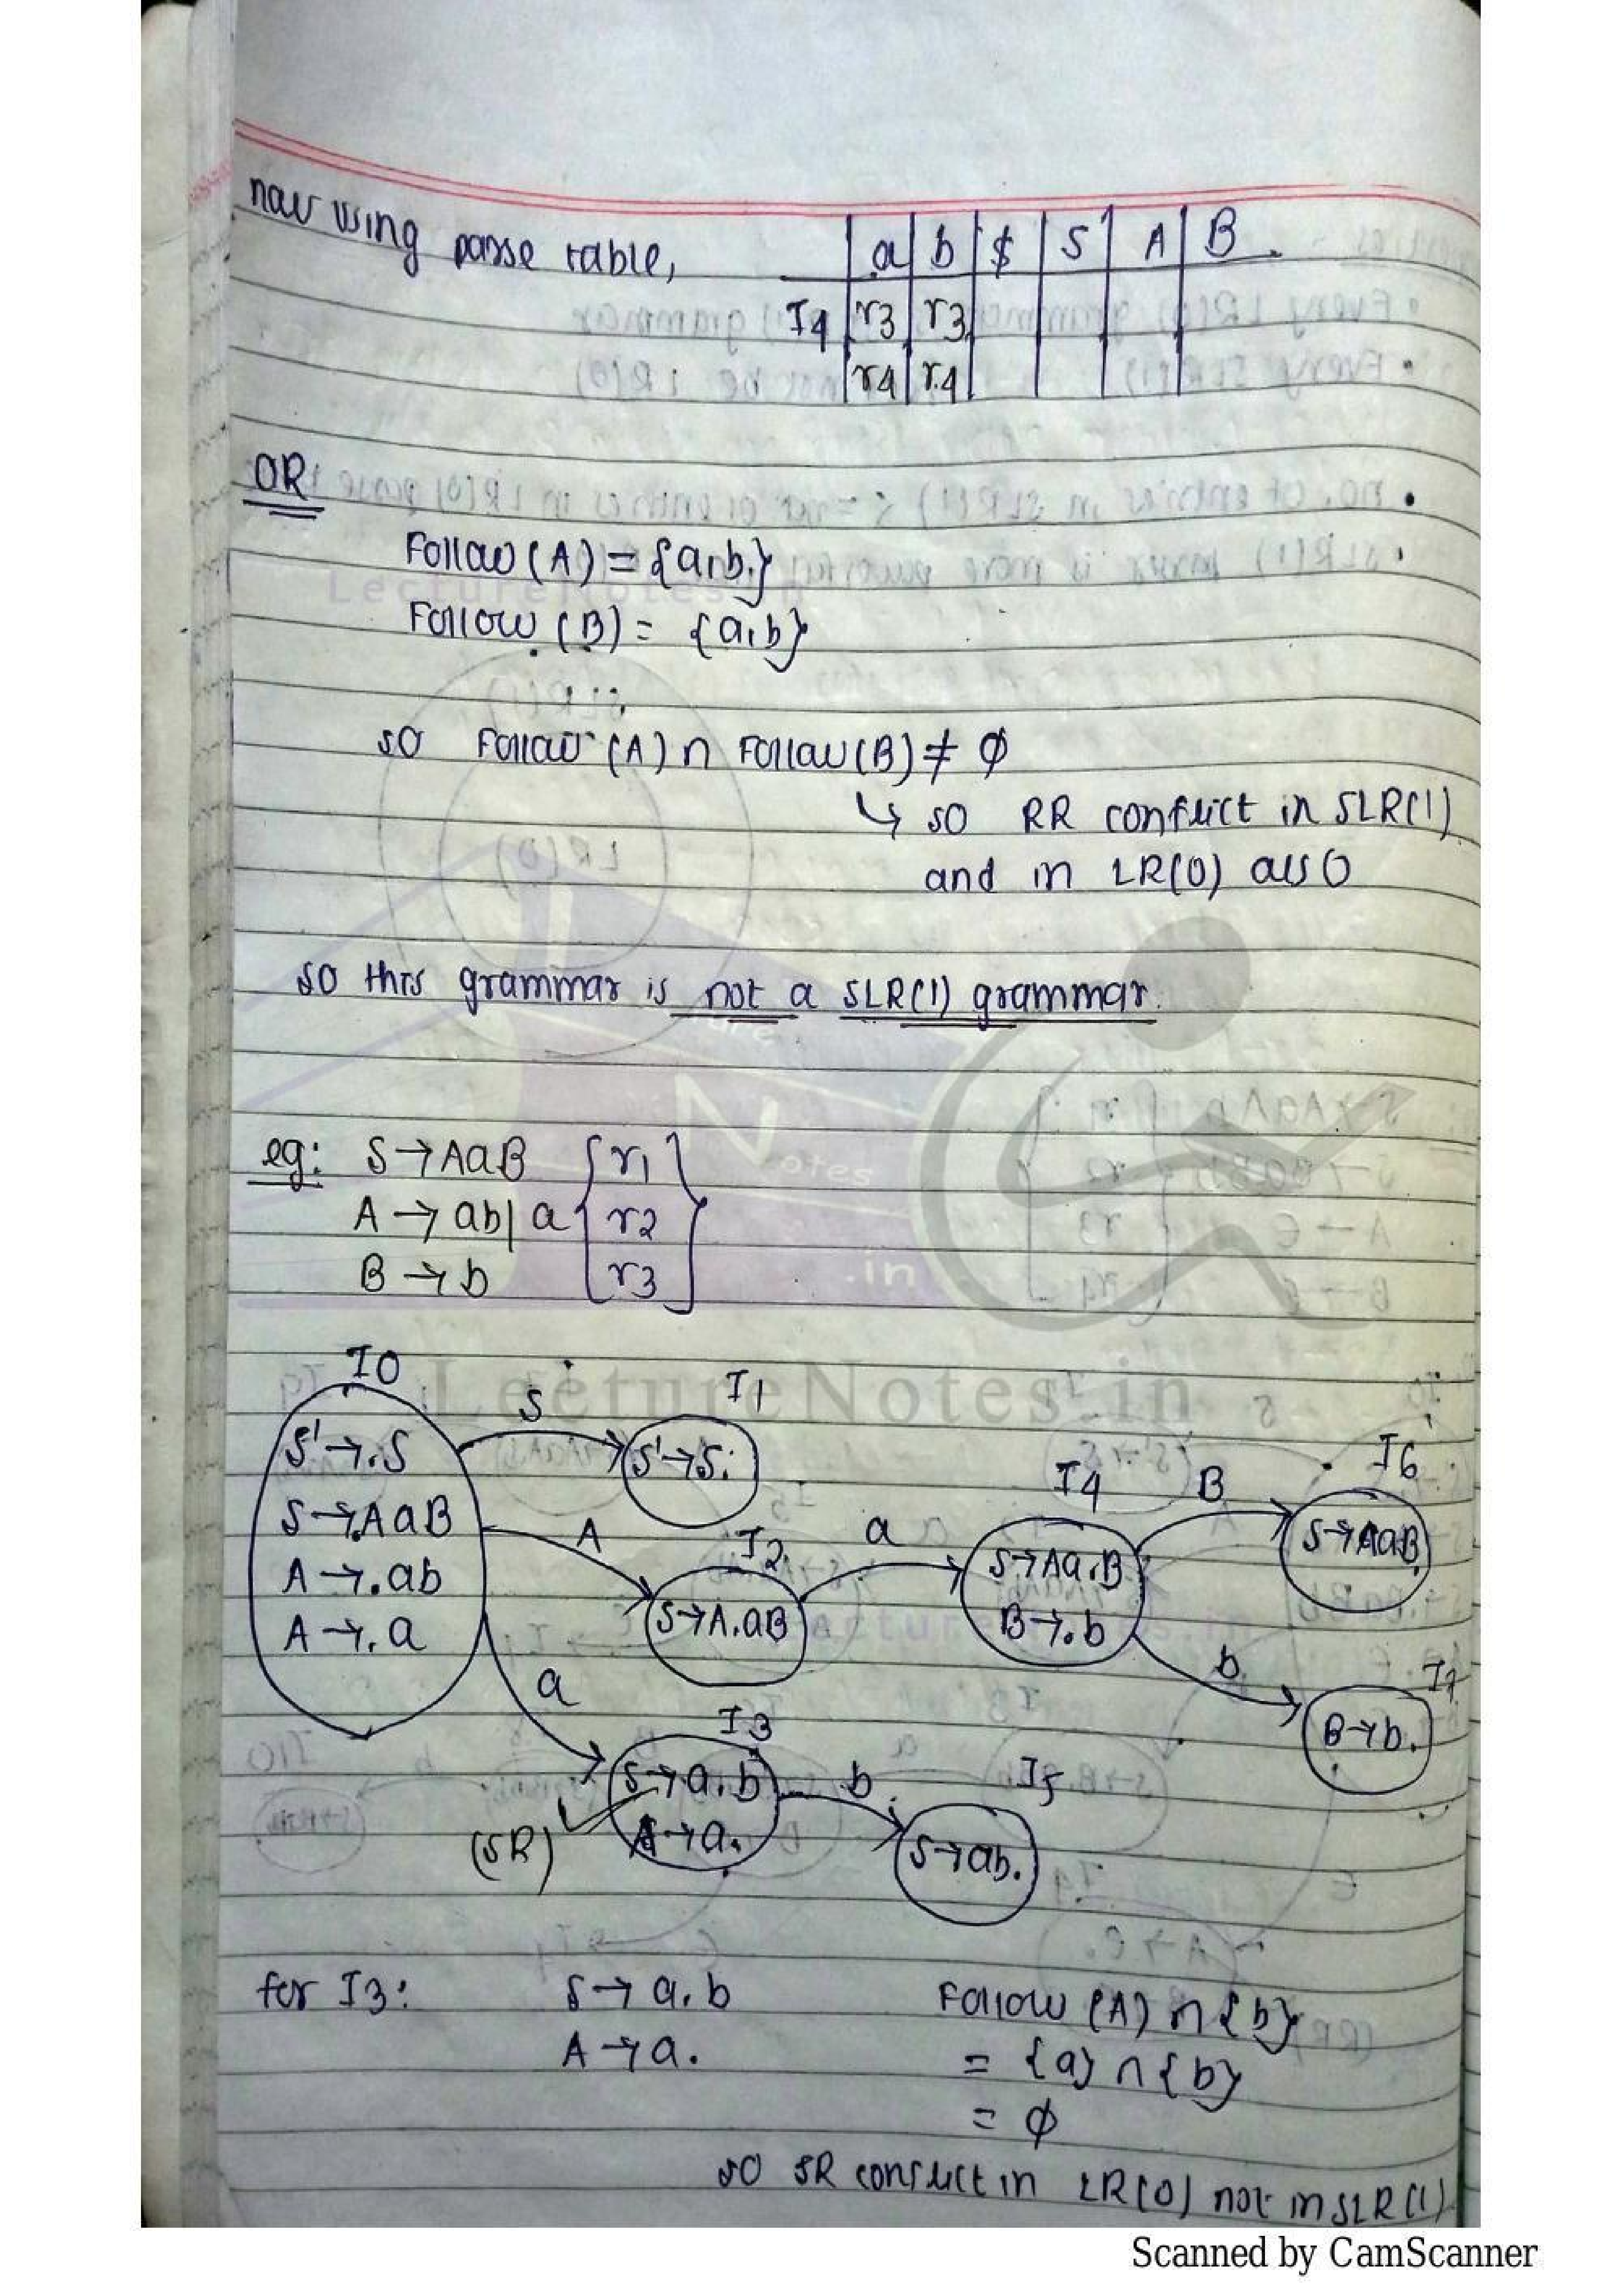 now using parse table,
a b $ S A B
I4 r3 r3
r4 r4
OR
Follow (A) = {a,b}
Follow (B) = {a,b}
so Follow (A) ∩ Follow (B) ≠ ϕ
↳ so RR conflict in SLR(1)
and in LR(0) also
so this grammar is not a SLR(1) grammar.
eg: S → AaB { r1 }
A → ab | a { r2 }
B → b { r3 }
I0
S' → .S
S → .AaB
A → .ab
A → .a
S
I1
S' → S.
A
I2
S → A.aB
a
I4
S → Aa.B
B → .b
B
I6
S → AaB.
b
I7
B → b.
a
I3
S → a.b
A → a.
(SR)
b
I5
S → ab.
for I3: S → a.b Follow (A) ∩ {b}
A → a. = {a} ∩ {b}
= ϕ
so SR conflict in LR(0) not in SLR(1)
LectureNotes.in
Scanned by CamScanner